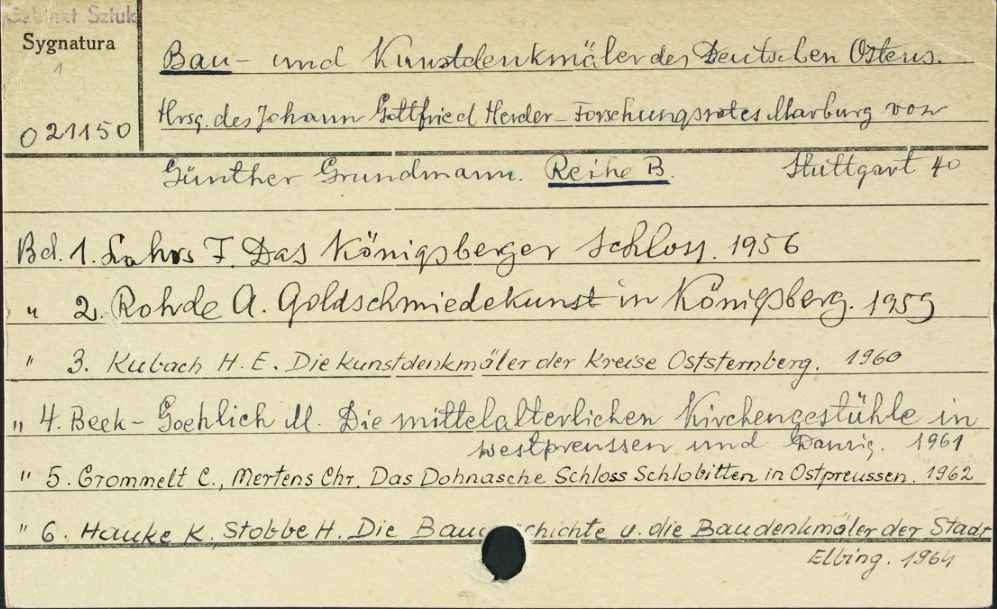 Gabinet Sztuk
Sygnatura
1
021150
Bau- und Kunstdenkmäler des Deutschen Ostens.
Hrsg. des Johann Gottfried Herder-Forschungsrates Marburg von
Günther Grundmann. Reihe B. Stuttgart 40
Bd. 1. Lahrs F. Das Königsberger Schloss. 1956
" 2. Rohde A. Goldschmiedekunst in Königsberg. 1959
" 3. Kubach H. E. Die Kunstdenkmäler der Kreise Oststernberg. 1960
" 4. Beek-Goehlich M. Die mittelalterlichen Kirchengestühle in
Westpreussen und Danzig. 1961
" 5. Grommelt C., Mertens Chr. Das Dohnasche Schloss Schlobitten in Ostpreussen. 1962
" 6. Hauke K. Stobbe H. Die Baugeschichte u. die Baudenkmäler der Stadt
Elbing. 1964